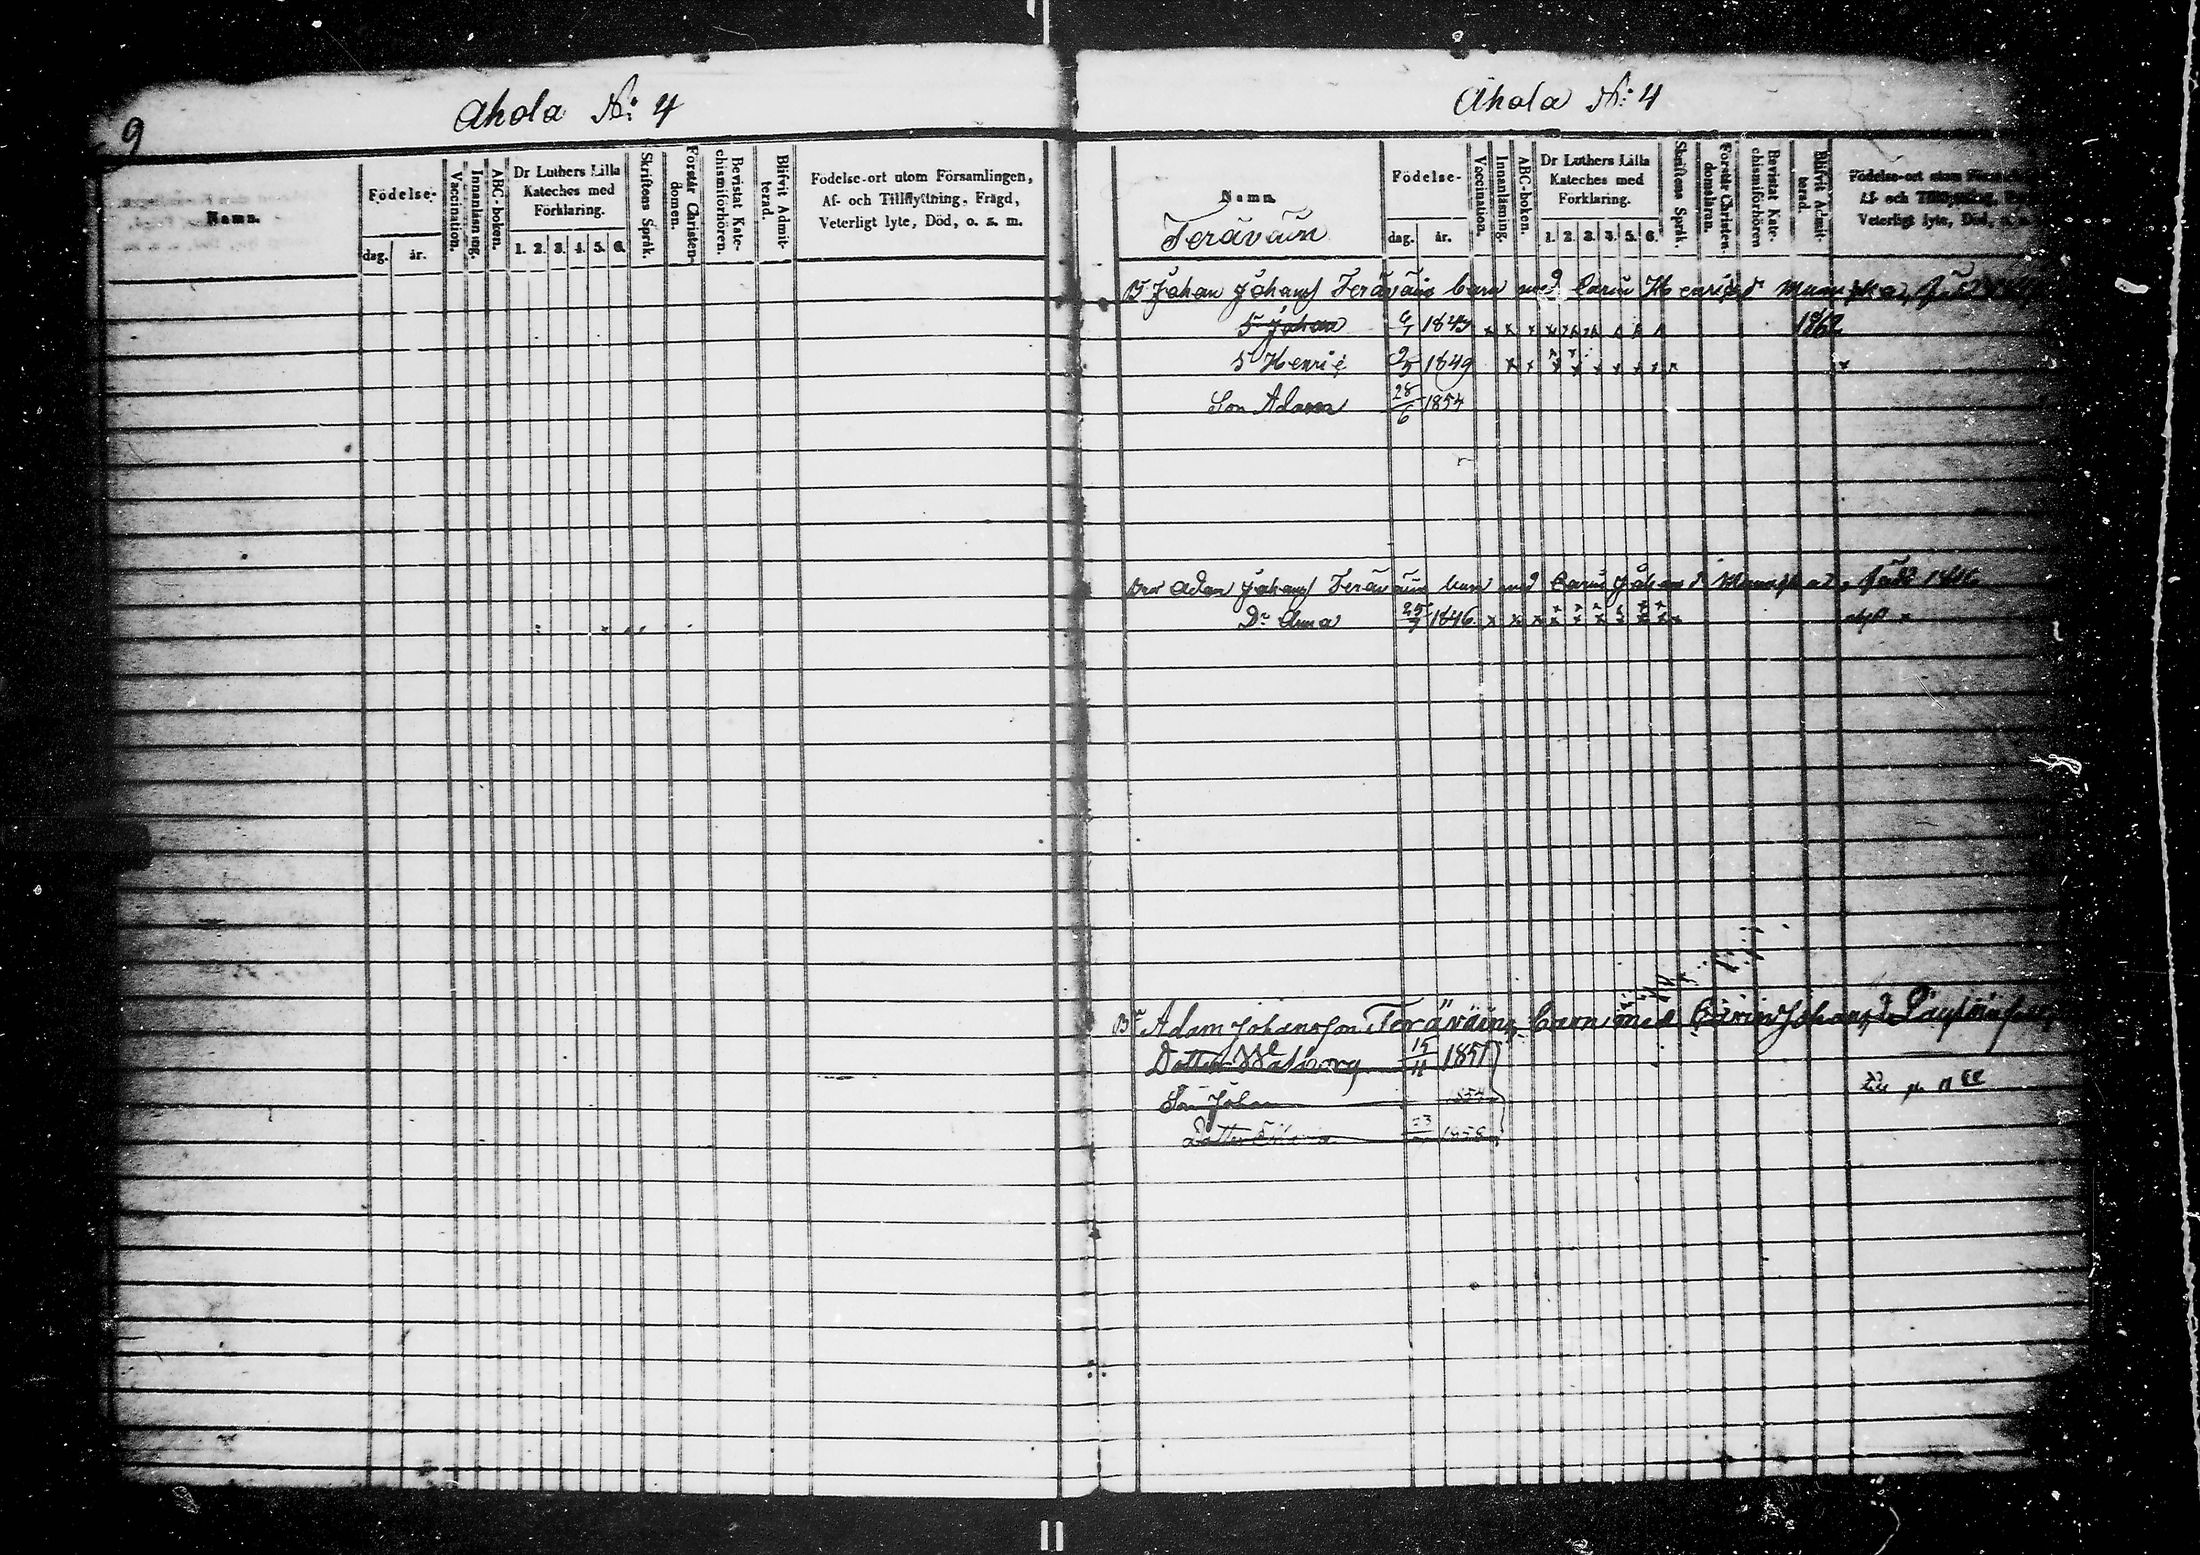 9
Ahola No: 4
Namn.
Födelse-
dag. år.
Vaccination.
Innanläsning.
ABC-boken.
Dr Luthers Lilla Kateches med Förklaring.
1. 2. 3. 4. 5. 6.
Skriftens Språk.
Förstår Christendomen.
Bevistat Katechismiförhören.
Blifvit Admitterad.
Födelse-ort utom Församlingen,
Af- och Tillflyttning, Frägd,
Veterligt lyte, Död, o. s. m.
Ahola No: 4
Namn.
Teräväin
Födelse-
dag. år.
Voccination.
Innanläsning.
ABC-boken.
Dr Luthers Lilla Kateches med Förklaring.
1. 2. 3. 4. 5. 6.
Skriftens Språk.
Förstår Christendomsläran.
Bevistat Katechismiförhören
Blifvit Admitterad.
Födelse-ort utom
Af- och Tillflyttning,
Veterligt lyte, Död,
Johan Johans Teräväin barn med Carin Henricsd
S Johan 6/1 1843 1862
S Henric 9/5 1849
Son Adam 28/6 1854
Adam Johans Teräväin barn med Carin Johansd
Dr Anna 1846
Br Adam Johansson Teräväin, barn med Johansd
Dotter Walborg 15/11 1851
Son Johan
Dotter